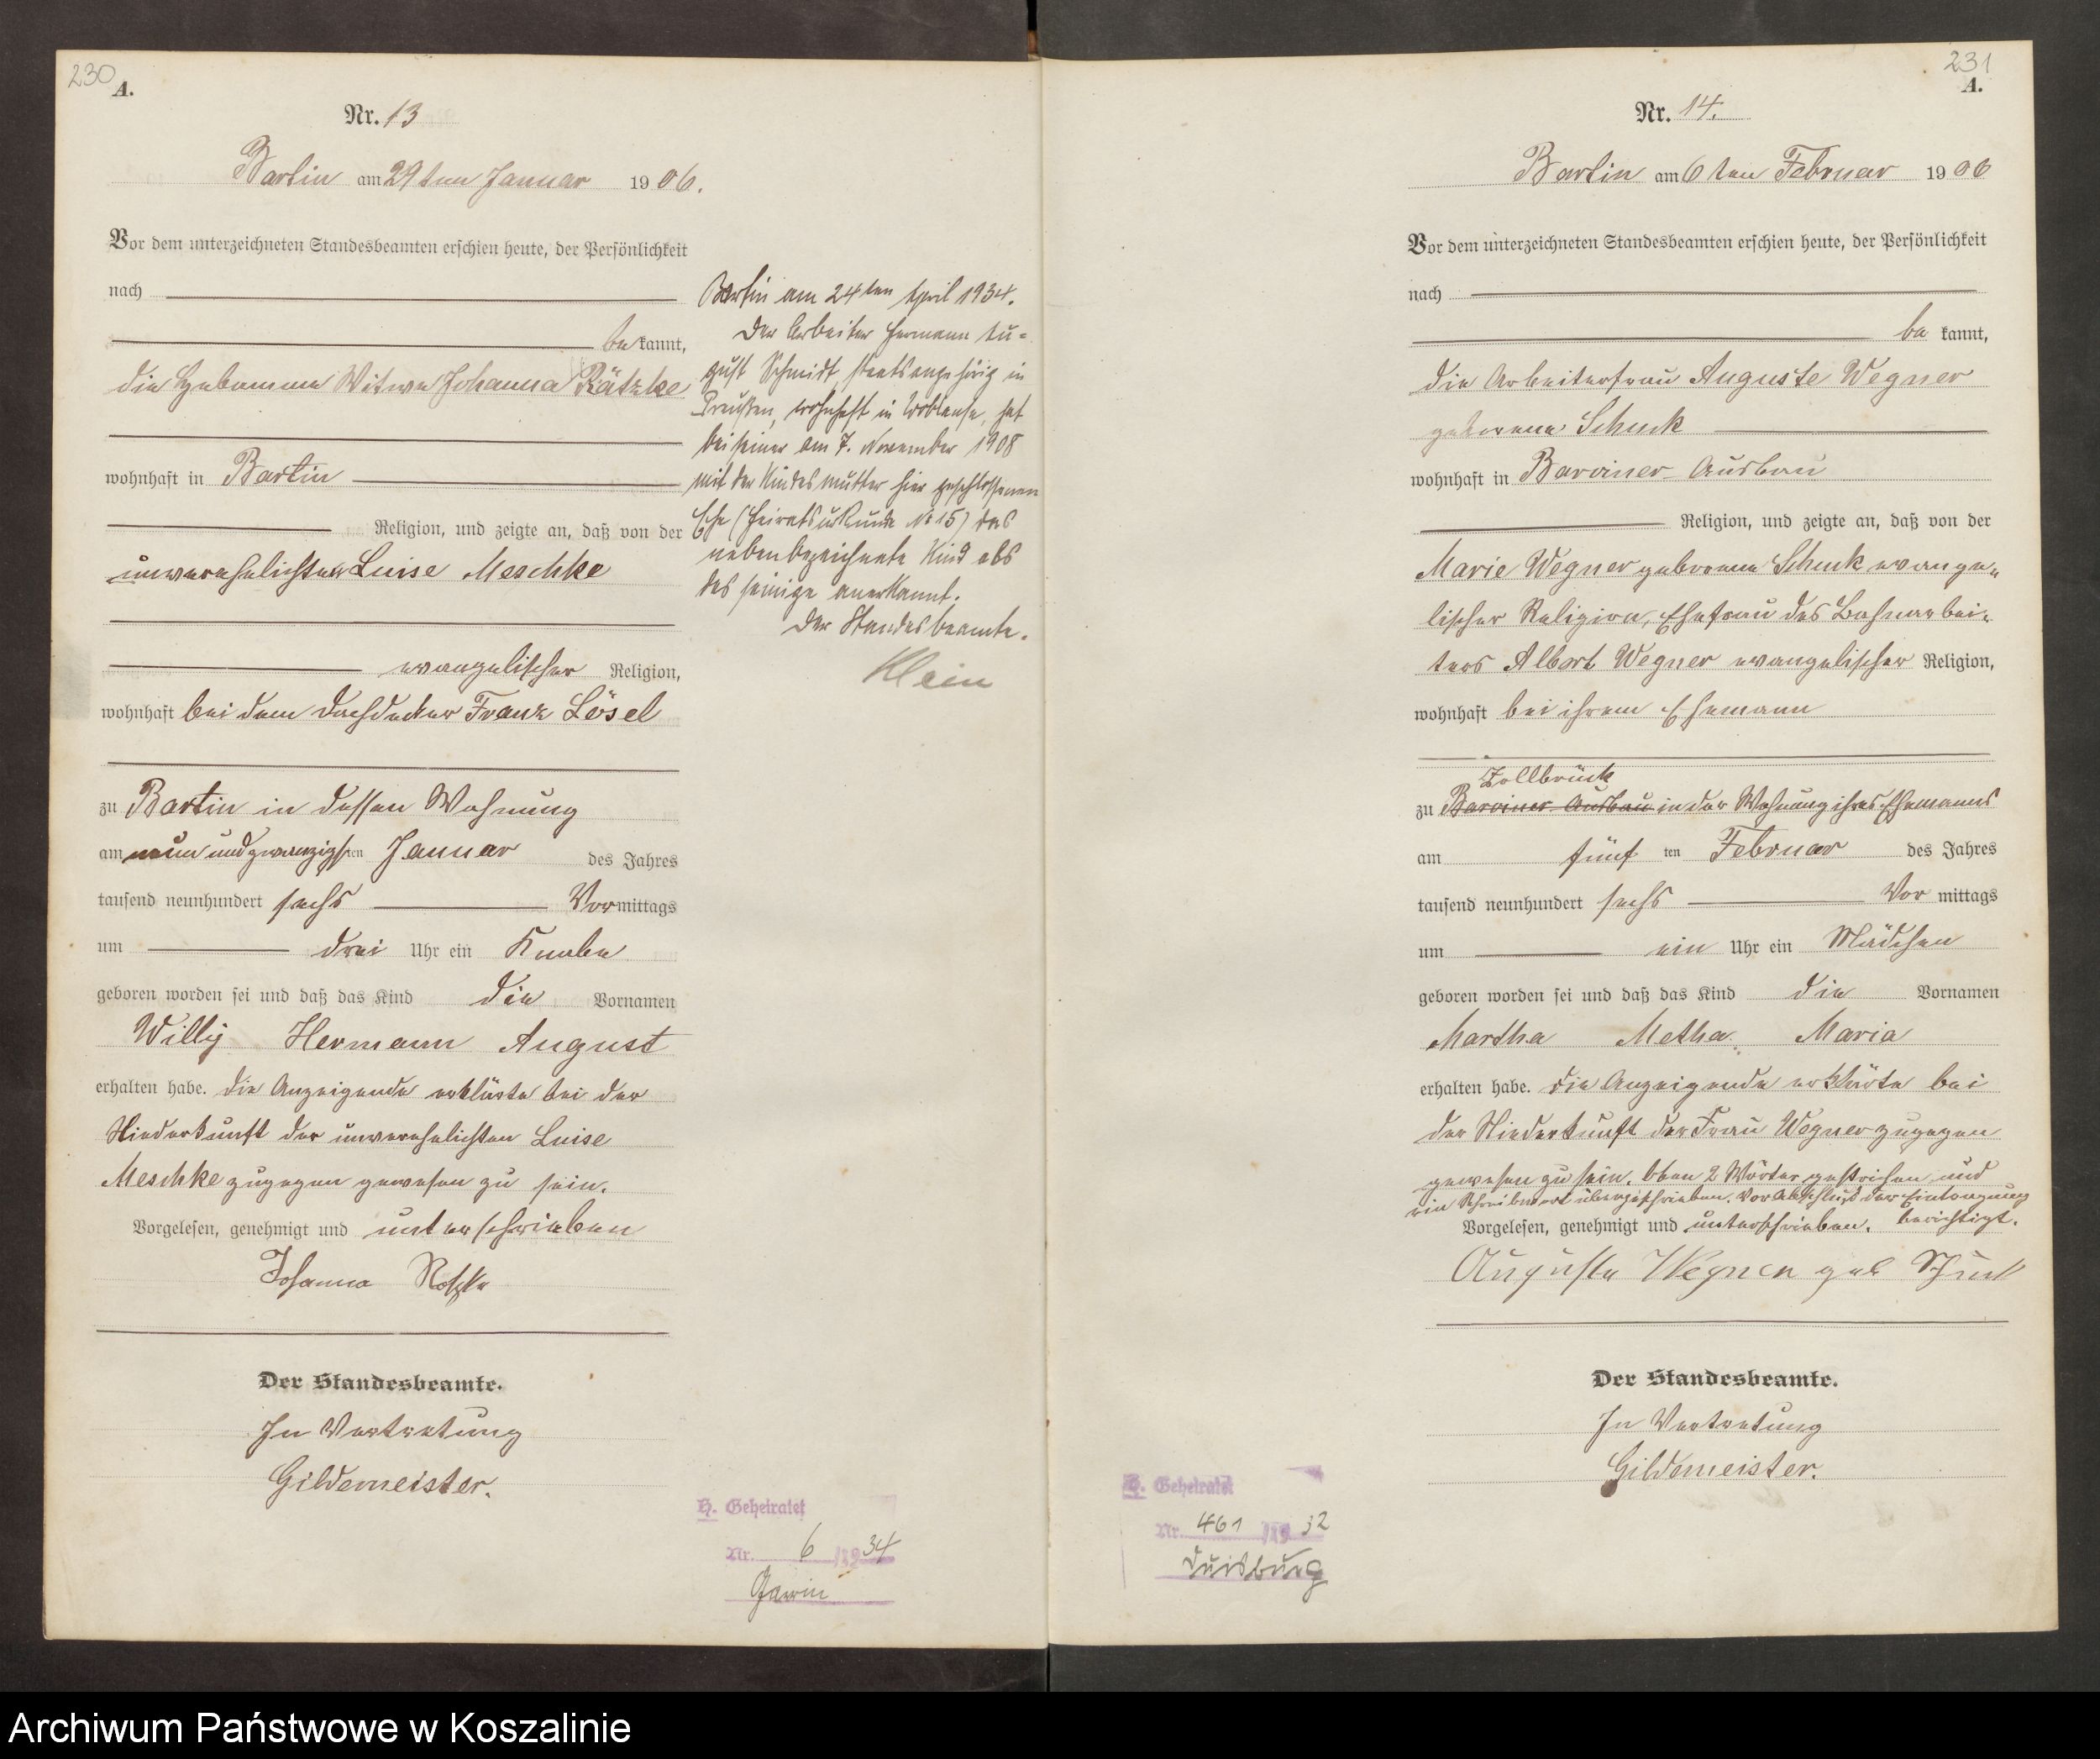 230
A.
Nr. 13
Bartin am 29ten Januar 1906.
Vor dem unterzeichneten Standesbeamten erschien heute, der Persönlichkeit
nach
bekannt,
die Hebamme Witwe Johanna Rätzke
wohnhaft in Bartin
Religion, und zeigte an, daß von der
unverehelichten Luise Meschke
evangelischer Religion,
wohnhaft bei dem Dachdecker Franz Lösel
zu Bartin in dessen Wohnung
am neun und zwanzigsten Januar des Jahres
tausend neunhundert sechs Vormittags
um drei Uhr ein Knabe
geboren worden sei und daß das Kind die Vornamen
Willy Hermann August
erhalten habe. Die Anzeigende erklärte bei der
Niederkunft der unverehelichten Luise
Meschke zugegen gewesen zu sein.
Vorgelesen, genehmigt und unterschrieben
Johanna
Der Standesbeamte.
In Vertretung
Gildemeister.
Bartin am 24ten April 1934.
Der Arbeiter Hermann Au=
gust Schmidt, staatsangehörig in
Preußen, wohnhaft in Woblanse, hat
bei seiner am 7. November 1908
mit der Kindesmutter hier geschlossenen
Ehe (Heiratsurkunde No 15) das
nebenbezeichnete Kind als
das seinige anerkannt.
Der Standesbeamte.
Klein
H. Geheiratet
Nr. 6 1934
231
A.
Nr. 14.
Bartin am 6ten Februar 1906
Vor dem unterzeichneten Standesbeamten erschien heute, der Persönlichkeit
nach
bekannt,
die Arbeiterfrau Auguste Wegner
geborene Schuk
wohnhaft in Barviner Ausbau
Religion, und zeigte an, daß von der
Marie Wegner geborene Schuk evange-
lischer Religion, Ehefrau des Bahnarbei-
ters Albert Wegner evangelischer Religion,
wohnhaft bei ihrem Ehemann
Zollbrück
zu Barviner Ausbau in der Wohnung ihres Ehemanns
am fünften Februar des Jahres
tausend neunhundert sechs Vormittags
um ein Uhr ein Mädchen
geboren worden sei und daß das Kind die Vornamen
Martha Metha Maria
erhalten habe. Die Anzeigende erklärte bei
der Niederkunft der Frau Wegner zugegen
gewesen zu sein. Oben 2 Wörter gestrichen und
ein übergeschrieben. Vor Abschluß der Eintragung
Vorgelesen, genehmigt und unterschrieben. berichtigt.
Auguste Wegner geb Schuk
Der Standesbeamte.
In Vertretung
Gildemeister.
H. Geheiratet
Nr. 461 1932
Duisburg
Archiwum Państwowe w Koszalinie